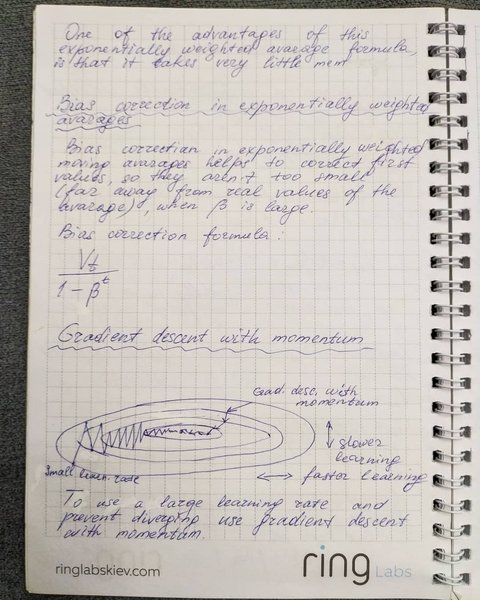 One of the advantages of this
exponentially weighted avarage formula,
is that it takes very little mem
Bias correction in exponentially weighted
avarages
Bias correction in exponentially weighted
moving avarages helps to correct first
values, so they aren't too small
(far away from real values of the
avarage), when β is large.
Bias correction formula:
Vt
1 - β^t
Gradient descent with momentum
Grad. desc. with
momentum
slower
learning
Small learn. rate
faster learning
To use a large learning rate and
prevent diverging use gradient descent
with momentum.
ringlabskiev.com
ring Labs